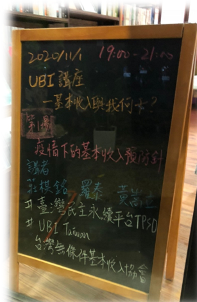 2020/11/1 19:00-21:00
UBI 講座
一基本收入與我何干?
疫情下的基本收入
講者
# 臺灣民主永續平台TPSD
# UBI Taiwan
台灣無條件基本收入協會